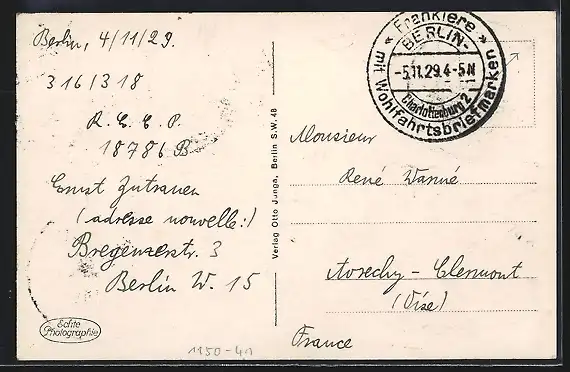 Berlin, 4/11/29.
316/318
R. E. C. P.
18786 B
Ernst Zutrauen
(adresse nouvelle:)
Bregenzerstr. 3
Berlin W. 15
Echte
Photographie
1150-41
Verlag Otto Junga, Berlin S.W. 48
« Frankiere »
mit Wohlfahrtsbriefmarken
BERLIN-
-5.11.29.4-5N
Charlottenburg 2
Monsieur
René Wanné
Clermont
(Oise)
France